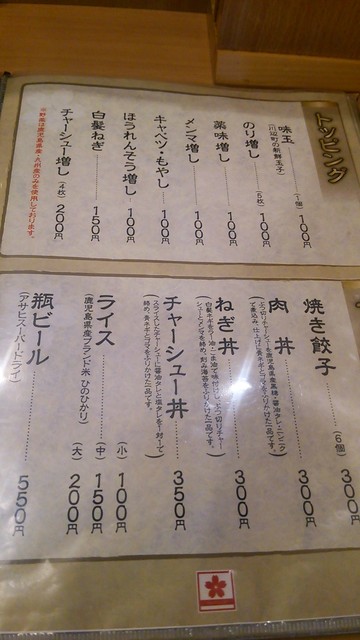 トッピング
味玉 (1個) 100円
(川辺町の新鮮玉子)
のり増し (5枚) 100円
薬味増し 100円
メンマ増し 100円
キャベツ・もやし 100円
ほうれんそう増し 100円
白髪ねぎ 150円
チャーシュー増し (4枚) 200円
焼き餃子 (6個) 300円
肉丼 300円
ねぎ丼 300円
チャーシュー丼 350円
(スライスしたチャーシューに醤油タレと塩タレを1対1で
ライス (小) 100円
(鹿児島県産ブランド米 ひのひかり) (中) 150円
(大) 200円
瓶ビール 550円
(アサヒスーパードライ)